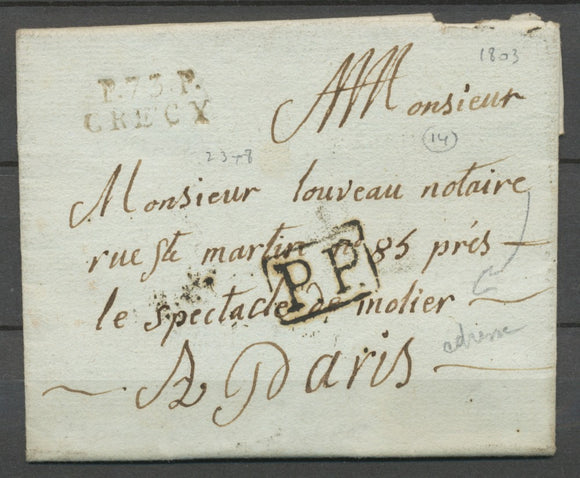 1803
P.73.P.
CRECY
Monsieur
14)
23+8
Monsieur louveau notaire
rue ste martin n° 85 prés
P.P.
le spectacle de molier
adresse
A Paris